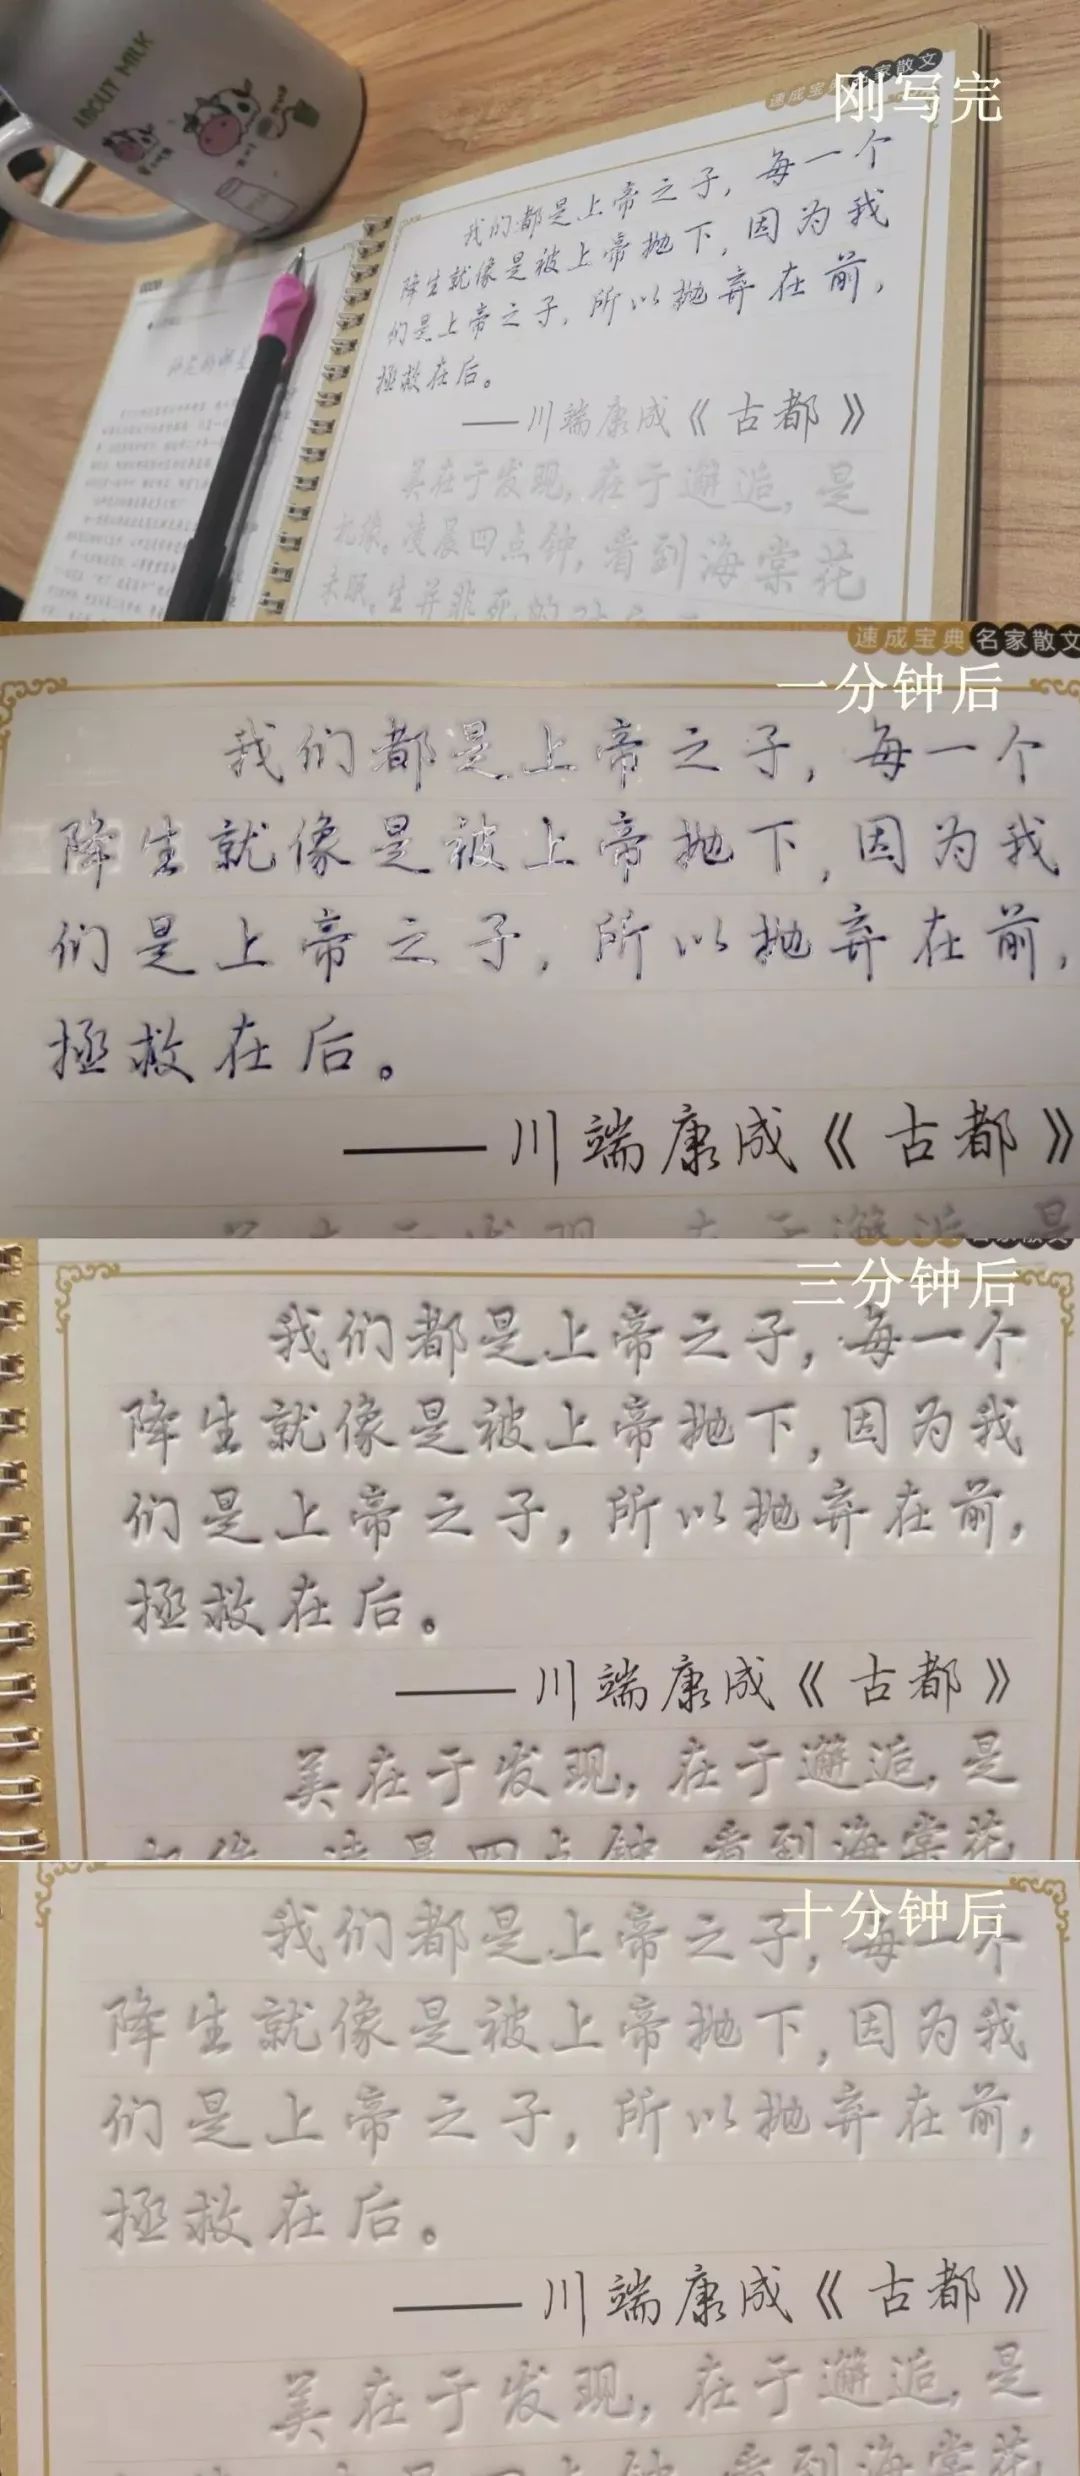 ABOUT MILK
速成宝典 名家散文
刚写完
我们都是上帝之子，每一个
降生就像是被上帝抛下，因为我
们是上帝之子，所以抛弃在前，
拯救在后。
——川端康成《古都》
美在于发现，在于邂逅，是
机缘。凌晨四点钟，看到海棠花
未眠。生并非死的对
速成宝典 名家散文
一分钟后
我们都是上帝之子，每一个
降生就像是被上帝抛下，因为我
们是上帝之子，所以抛弃在前，
拯救在后。
——川端康成《古都》
美在于发现，在于邂逅，是
三分钟后
我们都是上帝之子，每一个
降生就像是被上帝抛下，因为我
们是上帝之子，所以抛弃在前，
拯救在后。
——川端康成《古都》
美在于发现，在于邂逅，是
机缘。凌晨四点钟，看到海棠花
十分钟后
我们都是上帝之子，每一个
降生就像是被上帝抛下，因为我
们是上帝之子，所以抛弃在前，
拯救在后。
——川端康成《古都》
美在于发现，在于邂逅，是
机缘。凌晨四点钟，看到海棠花